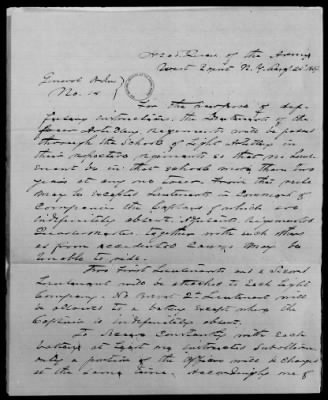 Head Qurs of the Army
West Point N.Y. Aug
General Order
No. 14
For the purpose of
instruction, the Lieutenants of the
four Artillery Regiments will be passed
through the Schools of Light Artillery in
their respective regiments so that no Lieu-
tenant do in that schools more than two
years at any one tour. From this rule
may be excepted Lieutenants in command of
Companies the Captains of which are
indefinitely absent. Adjutants Regimental
Quartermasters together with such others
as from accidental causes may be
unable to ride.
Two First Lieutenants and a Second
Lieutenant will be attached to each Light
Company. No Brevet 2d Lieutenant will
be allowed to a battery except where the
Captain is indefinitely absent.
To secure constantly with each
battery at least one instructed Subaltern
only a portion of the officers will be changed
at the same time. Accordingly one of